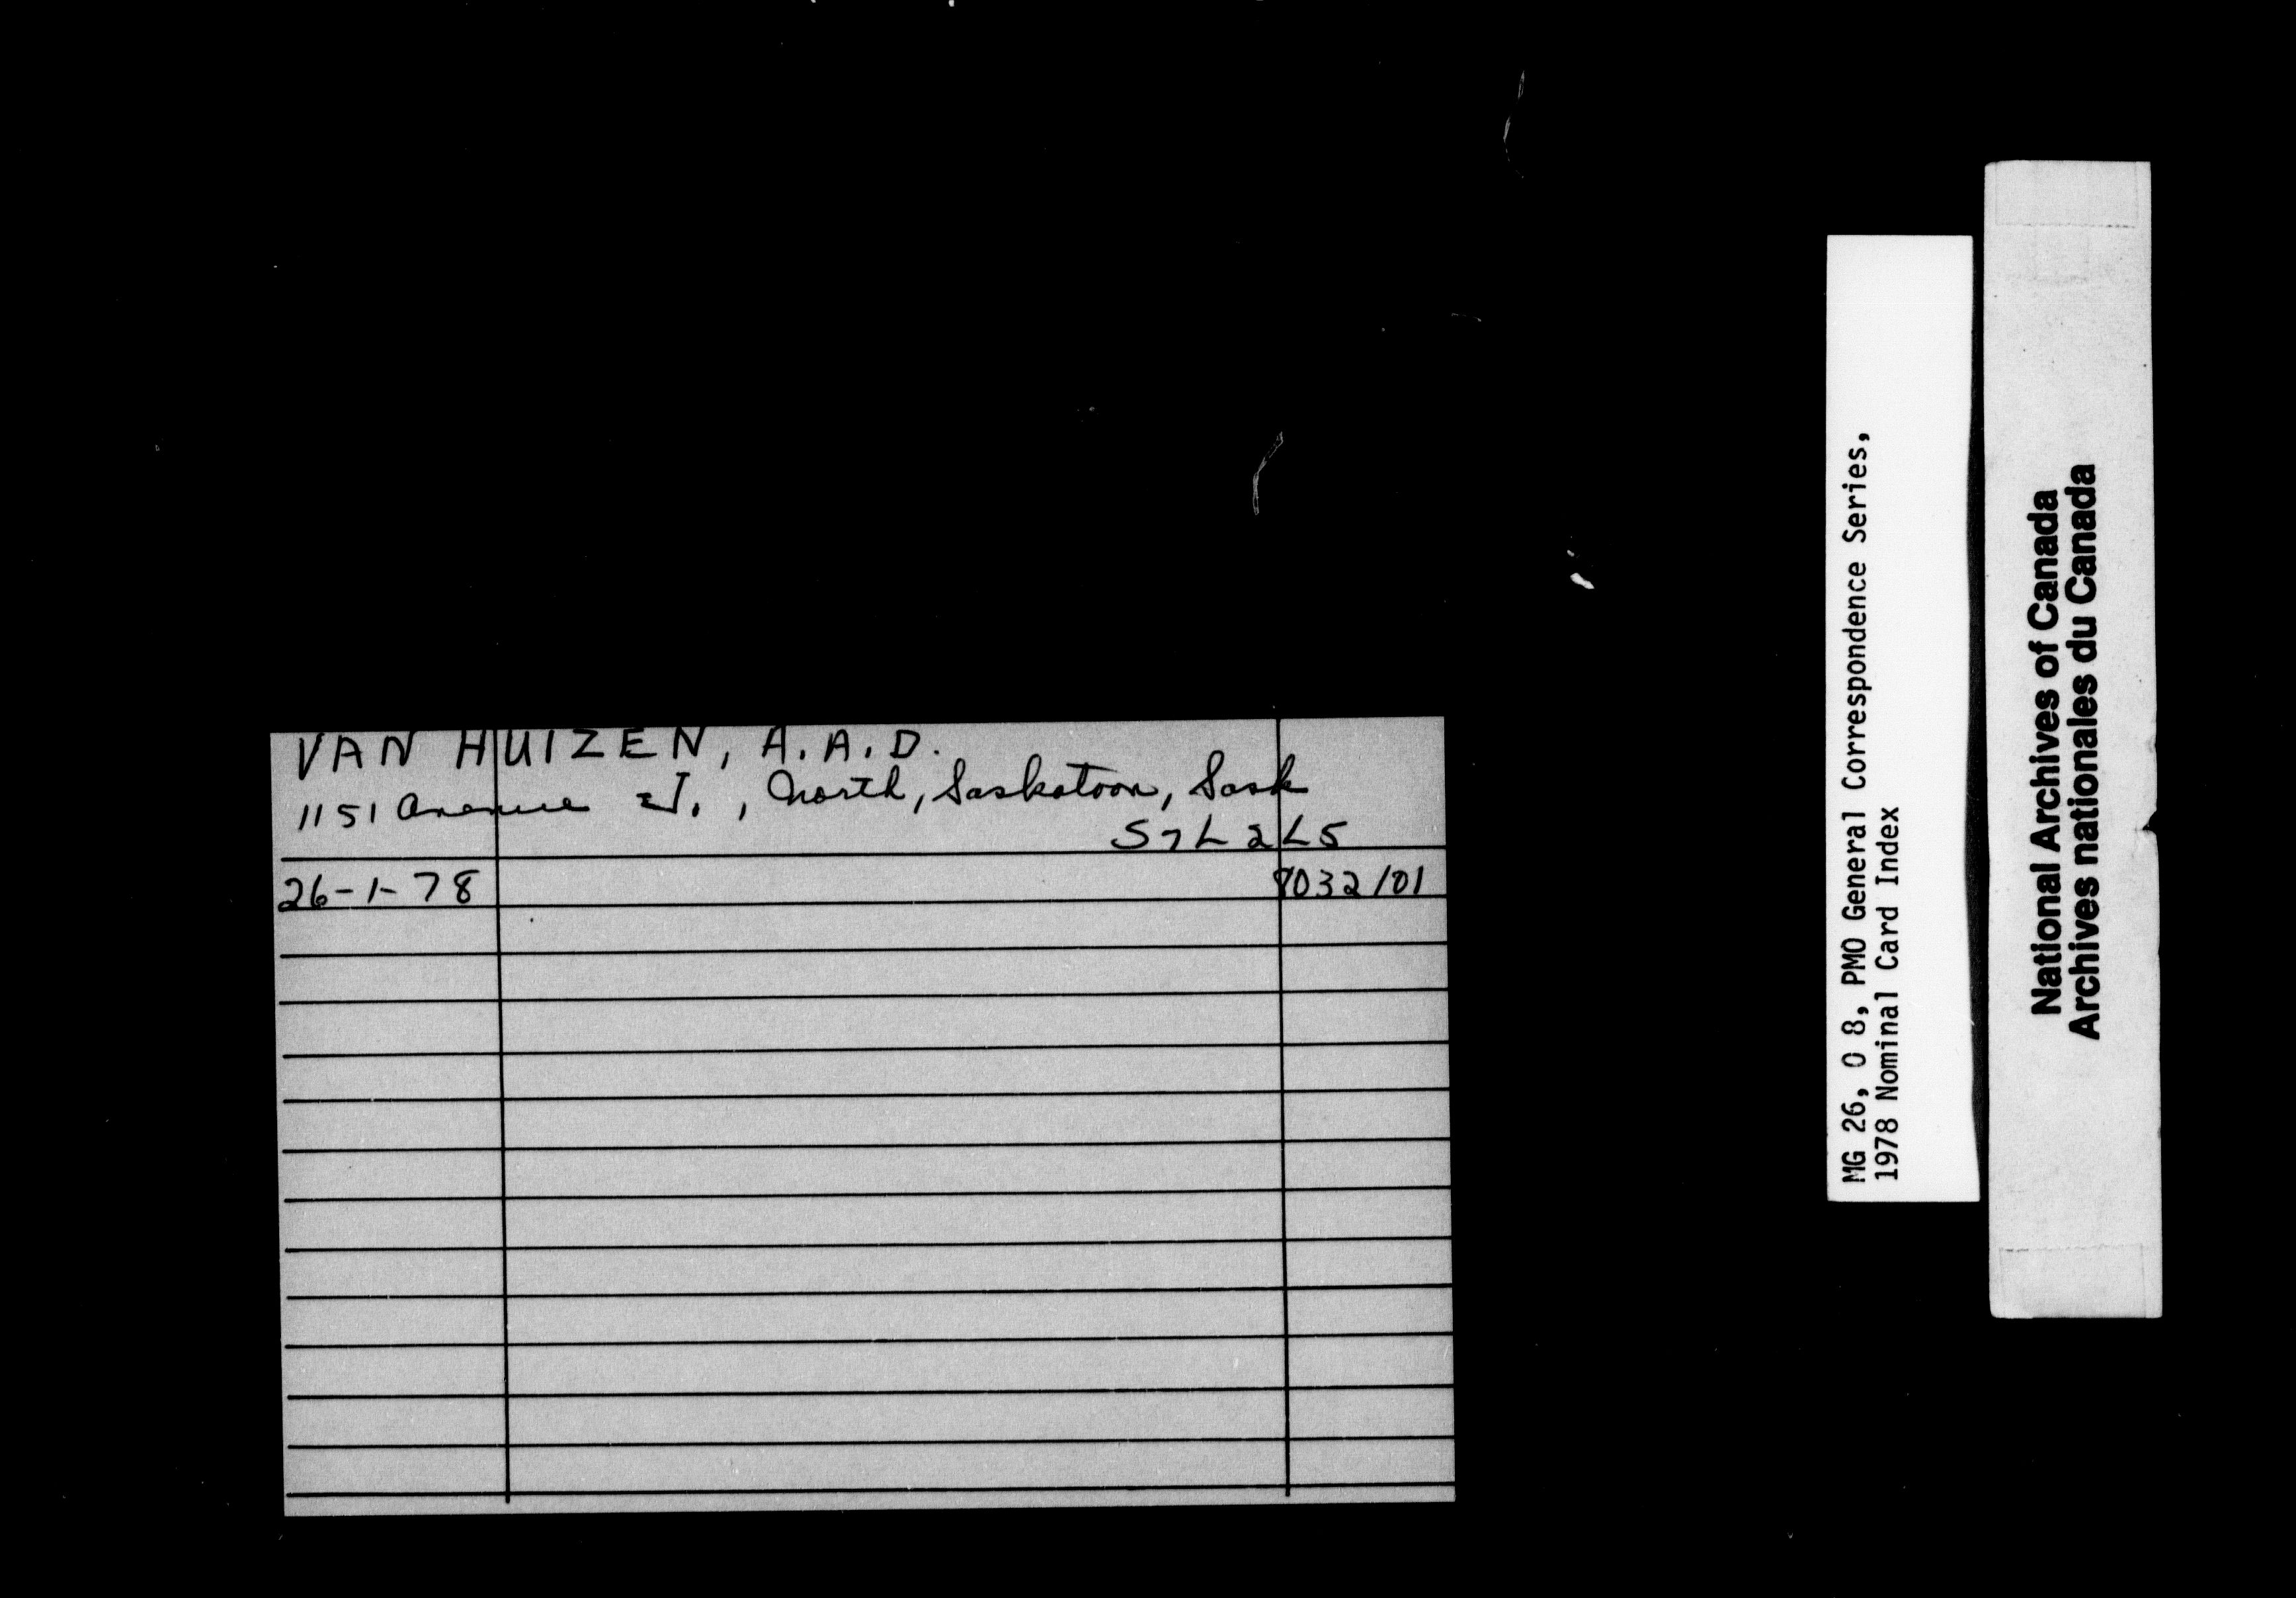 VAN HUIZEN, A.A.D.
1151 Avenue J., North, Saskatoon, Sask
S7L 2L5
26-1-78 8032/01
MG 26, O 8, PMO General Correspondence Series,
1978 Nominal Card Index
National Archives of Canada
Archives nationales du Canada